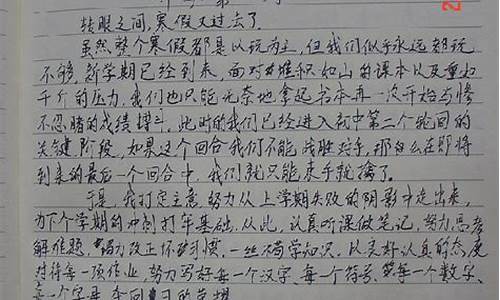 转眼之间,寒假又过去了.
虽然整个寒假都是以玩为主,但我们似乎永远都玩
不够.新学期已经到来,面对堆积如山的课本以及重如
千斤的压力,我们也只能无奈地拿起书本再一次开始与惨
不忍睹的成绩搏斗,此时的我们已经进入初中第二个轮回的
关键阶段,如果这个回合我们不能战胜对手,那么在即将
到来的最后一个回合中,我们就只能束手就擒了.
于是,我打定主意,努力从上学期失败的阴影中走出来,
为下个学期的冲刺打牢基础.从此,认真听课做笔记,努力思考
解难题,努力改正坏习惯,一丝不苟学知识.以良好认真的态度
对待每一项作业,努力写好每一个汉字、每一个符号、每一个数字、
每一个字母,夺回